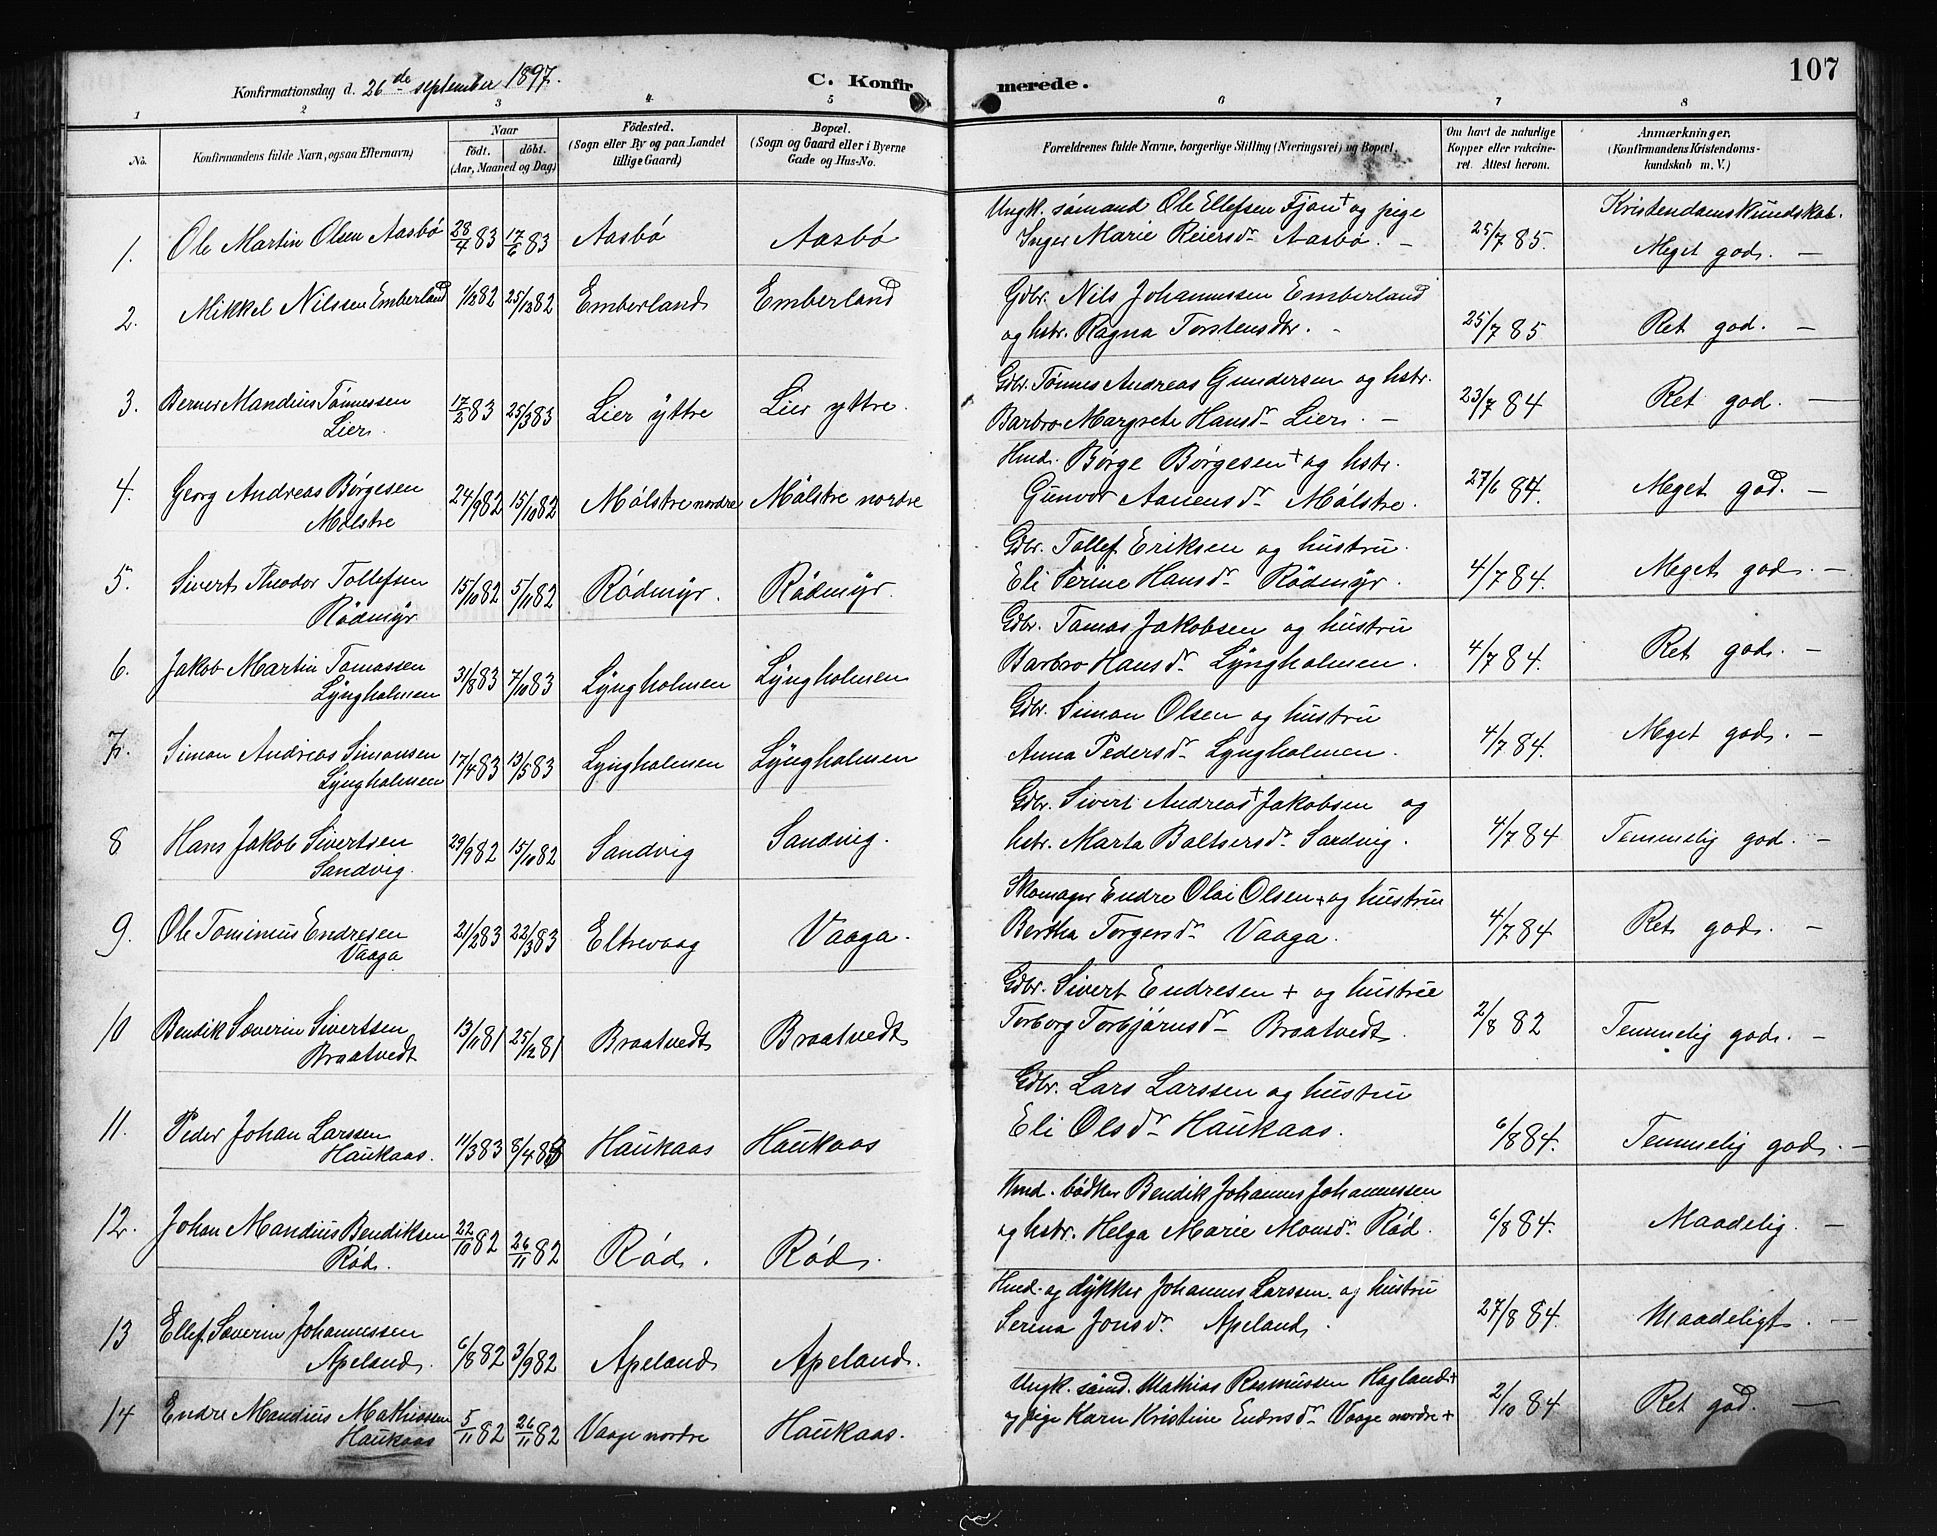 Konfirmationsdag d. 26de september 1897.
C. Konfirmerede.
107
1 2 3 4 5 6 7 8
No.
Konfirmandens fulde Navn, ogsaa Efternavn)
Naar
födt. döbt.
(Aar, Maaned og Dag)
Födested.
(Sogn eller By og paa Landet
tillige Gaard)
Bopæl.
(Sogn og Gaard eller i Byerne
Gade og Hus-No.
Forældrenes fulde Navne, borgerlige Stilling (Næringsvei) og Bopæl.
Om havt de naturlige
Kopper eller vakcine-
ret. Attest herom.
Anmærkninger.
(Konfirmandens Kristendoms-
kundskab m. V.)
Kristendomskundskab.
1. Ole Martin Olsen Aasbö 28/4 83 17/6 83 Aasbö Aasbö Ungk. sömand Ole Ellefsen Fjon + og pige
Inger Marie Reiersdr Aasbö. - 25/7 85. Meget god. -
2. Mikkel Nilssen Emberland 1/12 82 25/12 82 Emberland Emberland Gdbr. Nils Johannessen Emberland
og hstr. Ragna Torstensdtr. - 25/7 85 Ret god. -
3. Berner Mandius Tönnessen
Lier. 17/2 83 25/3 83 Lier yttre Lier yttre. Gdbr. Tönnes Andreas Gundersen og hstr.
Barbro Margrete Hansdr Lier. - 23/7 84 Ret god. -
4. Georg Andreas Börgesen
Mölstre 24/9 82 15/10 82 Mölstre nordre Mölstre nordre Hmd. Börge Börgesen + og hstr.
Gunvor Aanensdr Mölstre. 27/6 84. Meget god. -
5. Sivert Theodor Tollefsen
Rödmyr 15/10 82 5/11 82 Rödmyr. Rödmyr. Gdbr. Tollef Eriksen og hustru.
Eli Serine Hansdr Rödmyr. 4/7 84. Meget god. -
6. Jakob Martin Tomassen
Lyngholmen 31/8 83 7/10 83 Lyngholmen Lyngholmen Gdbr. Tomas Jakobsen og hustru
Barbro Hansdr Lyngholmen. 4/7 84. Ret god. -
7. Simon Andreas Simonsen
Lyngholmen 17/4 83 13/5 83 Lyngholmen Lyngholmen Gdbr. Simon Olsen og hustru
Anna Pedersdr Lyngholmen. 4/7 84. Meget god. -
8 Hans Jakob Sivertsen
Sandvig. 29/9 82 15/10 82 Sandvig Sandvig. Gdbr. Sivert Andreas + Jakobsen og
hstr. Marta Baltsersdr Sandvig. 4/7 84 Temmelig god. -
9. Ole Tominius Endresen
Vaaga 21/2 83 22/3 83 Eltrevaag Vaaga. Skomager Endre Olai Olsen + og hustru
Bertha Torgersdr Vaaga. 4/7 84. Ret god. -
10 Bendik Severin Sivertsen
Braatvedt 13/11 81 25/12 81 Braatvedt Braatvedt Gdbr. Sivert Endresen + og hustru
Torborg Torbjörnsdr Braatvedt. 2/8 82 Temmelig god. -
11. Peder Johan Larssen
Haukaas. 11/3 83 8/4 83 Haukaas Haukaas Gdbr. Lars Larssen og hustru
Eli Olsdr Haukaas. 6/8 84. Temmelig god. -
12. Johan Mandius Bendiksen
Röd. 22/10 82 26/11 82 Röd. Röd. Hmd. bödker Bendik Johannes Johannessen
og hstr. Helga Marie Monsdr Röd. 6/8 84. Maadelig. -
13 Ellef Severin Johannessen
Apeland. 6/8 82 3/9 82 Apeland Apeland. Hmd. og dykker Johannes Larssen og hustru
Serina Jonsdr. Apeland. 27/8 84. Maadeligt. -
14 Endre Mandius Mathiassen
Haukaas 5/11 82 26/11 82 Vaage nordre Haukaas. Ungk. sömd. Mathias Rasmussen Hagland +
og pige Karn Kristine Endresdr Vaage nordre + 2/10 84 Ret god. -